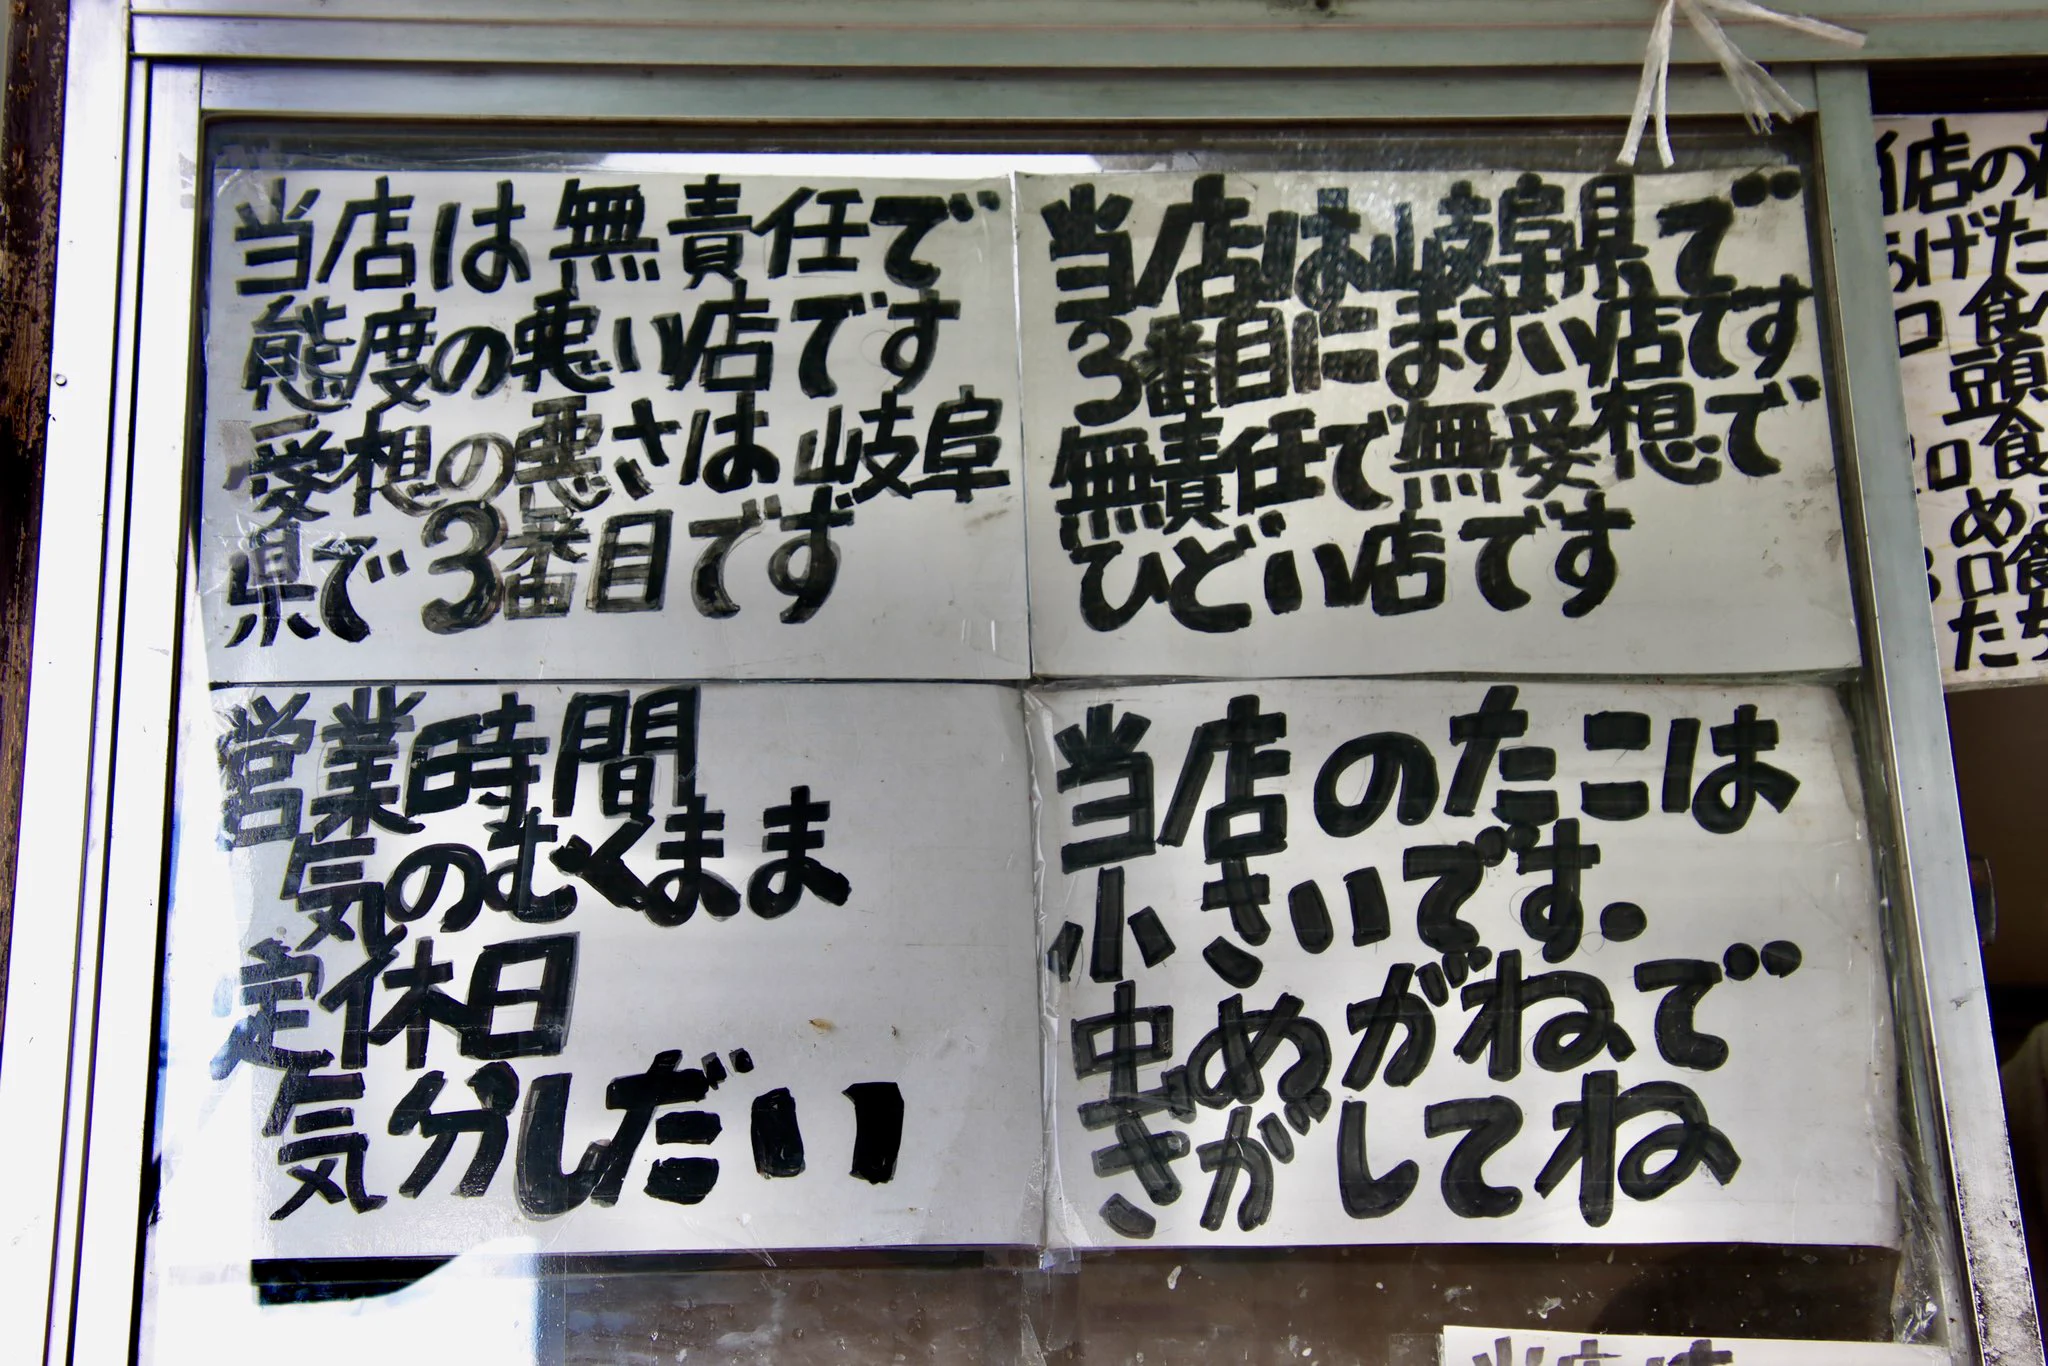 当店は無責任で
態度の悪い店です
愛想の悪さは岐阜
県で3番目です
当店は岐阜県で
3番目にまずい店です
無責任で無愛想で
ひどい店です
営業時間
気のむくまま
定休日
気分しだい
当店のたこは
小さいです.
虫めがねで
さがしてね
当店の
あげた
口 食
頭
口 食
め
口 食
たち
当店は